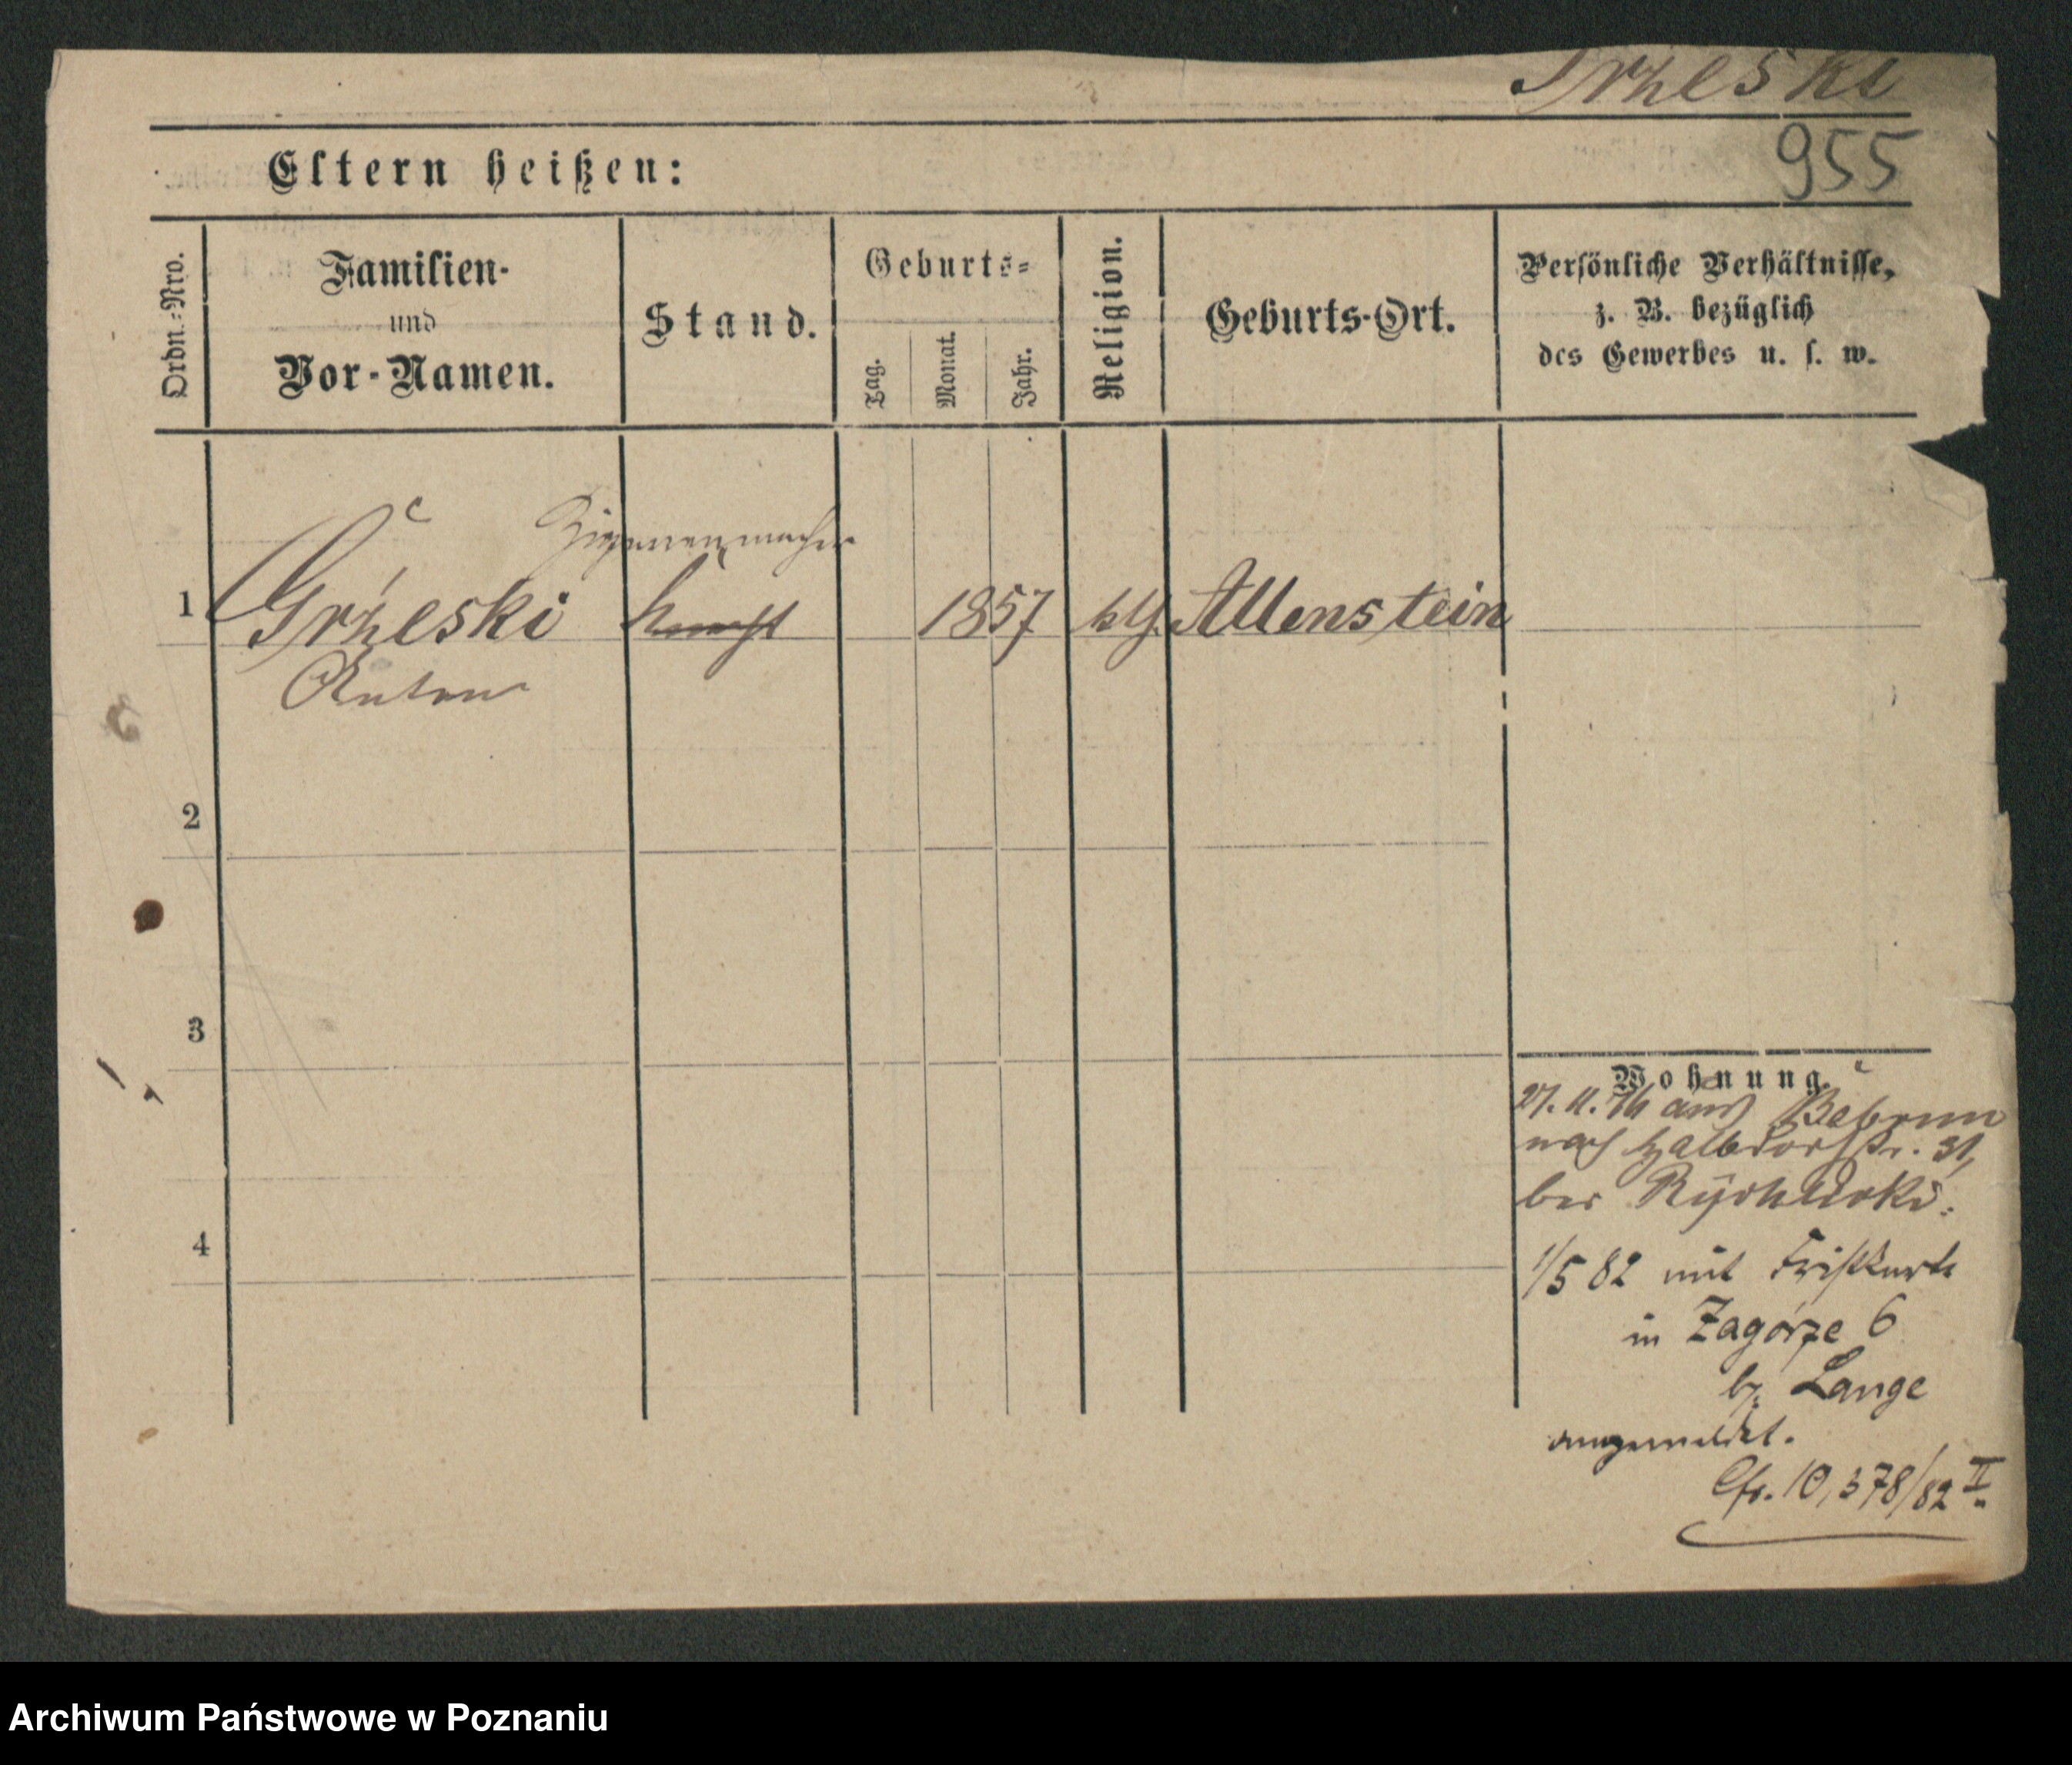 Grzeski
955
Eltern heißen:
Ordn.-Nro.
Familien-
und
Vor-Namen.
Stand.
Geburts-
Tag.
Monat.
Jahr.
Religion.
Geburts-Ort.
Persönliche Verhältnisse,
z. B. bezüglich
des Gewerbes u. s. w.
1 Grżeski 1857 Allenstein
Anton
2
3
4
Wohnung.
27. 11. aus
nach Halbdorfstr. 31,
bei
1/5 82 mit
in Zagórze 6
b. Lange
angemeldet.
Cfr. 10,378/82 II.
Archiwum Państwowe w Poznaniu